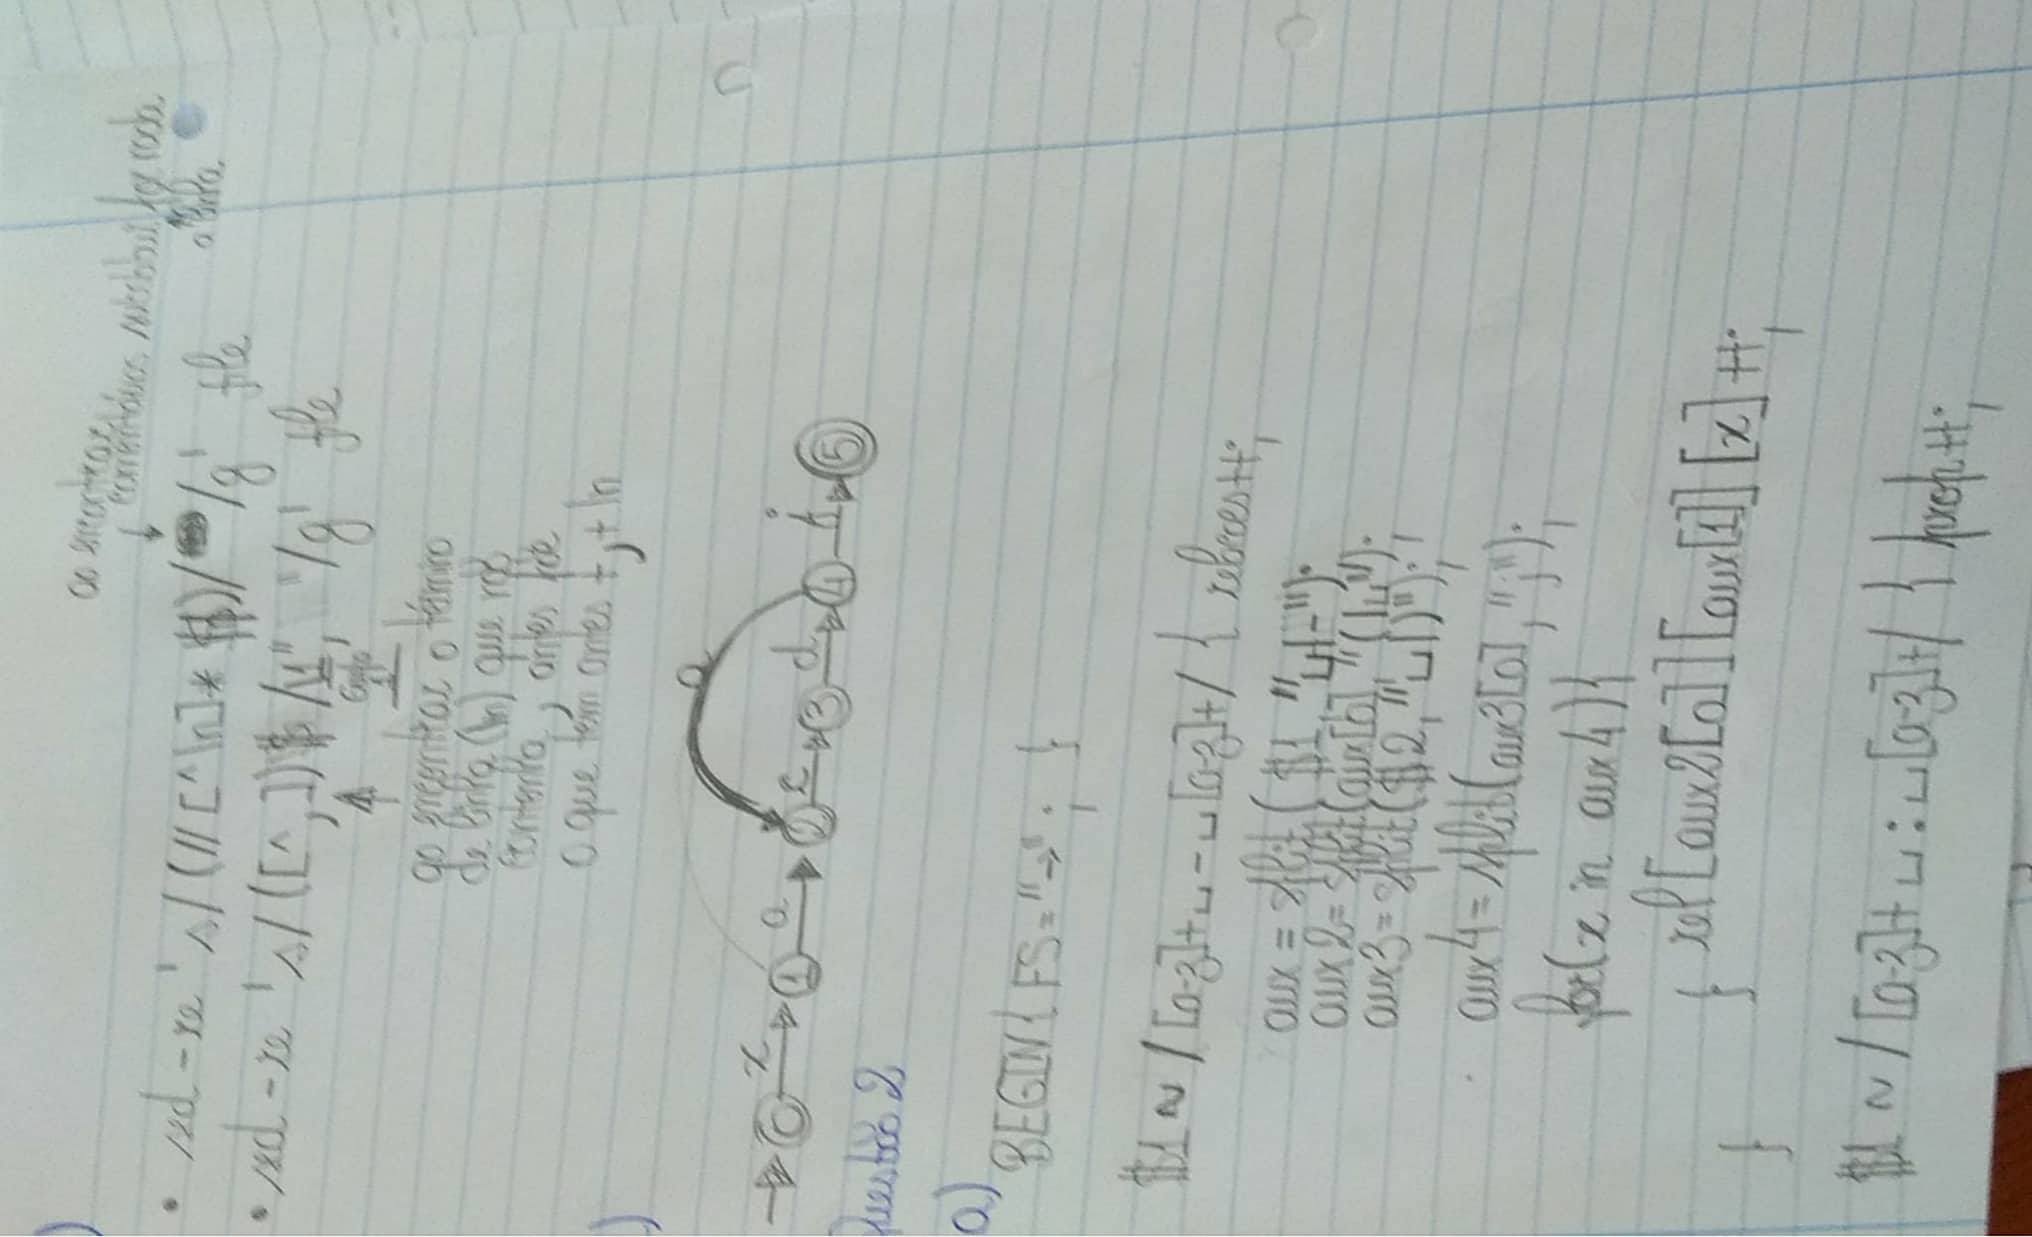 )
ao encontrar
comentários substitui por nada
a linha.
• sed -re 's/(//[^\n]*$)/ /g' file
• sed -re 's/([^,])$/\1", "/g' file
Grupo
1
ao encontrar o término
de linha (\n) que não
contenha, antes põe
o que tem antes + , + \n
)
x a c d a j
1 2 3 4 5
Questão 2
a)
BEGIN{ FS="→"; }
$1 ~ /[a-z]+␣-␣[a-z]+/ { relacoes++;
aux = split($1, "␣|-");
aux2= split(aux[0], "(|␣");
aux3= split($2, "␣|)");
aux4= split(aux3[0], ";");
for(x in aux4){
} rel[aux2[0]][aux[1]][x]++;
}
$1 ~ /[a-z]+␣:␣[a-z]+/ { prop++;